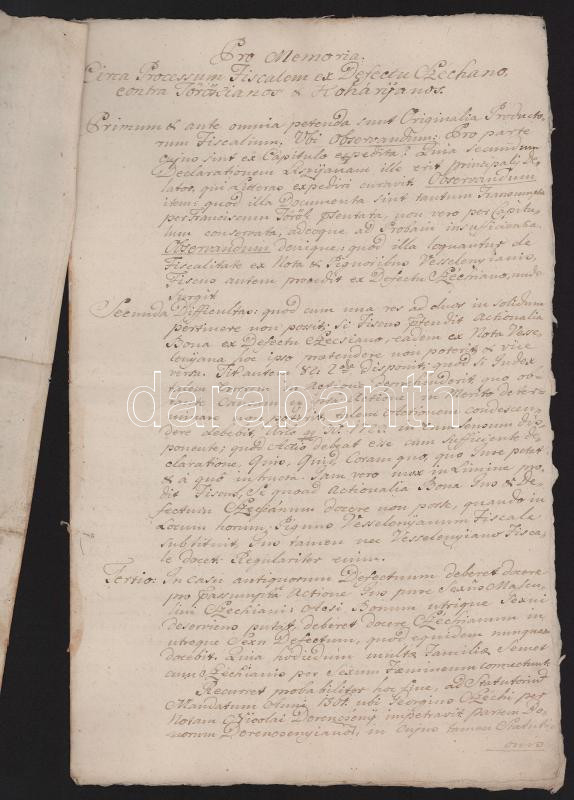 Pro Memoria.
Circa Processum Fiscalem ex Defectu Czechano,
contra Törökianos & Koharijanos.
Primum & ante omnia petenda sunt Originalia Producto-
rum Fiscalium; Ubi Observandum: Pro parte
cujus sint ex Capitulo expedita? Quia secundum
Declarationem ille erit principalis de-
lator, qui Literas expediri curavit. Observandum
item: quod illa Documenta sint tantum Transumpta
per Franciscum Török psentata, non vero per Capitu-
lum conservata, adeoque ad Probam insufficientia.
Observandum denique: quod illa loquantur de
Fiscalitate ex Nota & Pignoribus Vesselenyianis,
Fiscus autem procedit ex Defectu Czechiano, unde
surgit
Secunda Difficultas: quod cum una res ad duos in solidum
pertinere non possit; Si Fiscus ptendit Actionalia
Bona ex Defectu Czechiano, eadem ex Nota Vesse-
lenyiana hoc ipso praetendere non poterit & vice
versa. Tit autem 84. 2dae Disponit; quod si Judex
in Merito deter-
minare non possit, talem
dere debebit,
ponente; quod Actio debeat esse cum sufficiente de-
claratione, Quis, Quid, Coram quo, quo Jure petat
& à quo instructa. Jam vero mox in Limine pro-
dit Fiscus, Se quoad Actionalia Bona Jus & De-
fectum Czechianum docere non posse, quando in
Locum horum, Pignus Vesselenyianum Fiscale
substituit, Jus tamen nec Vesselenyiano Fisca-
le docet. Regulariter enim.
Tertio: In casu antiquorum Defectuum deberet docere
pro passumpta Actione Jus pure Sexus Mascu-
lini Czechiani: At si Bonum utrique Sexui
deserviens putat, deberet docere Czechianum in
utroque Sexu Defectum, quod equidem nunquam
docebit. Quia hodiedum multae Familiae Semet
cum Czechianis per Sexum Foemineum connectunt.
Recurret probabiliter hoc fine, ad Statutorium
Mandatum Anni ubi Georgius Czechi per
Notam Nicolai Derencseny impetravit partem Bo-
norum Derencsenyianor, in cujus tamen Statuti-
onis
darabanth